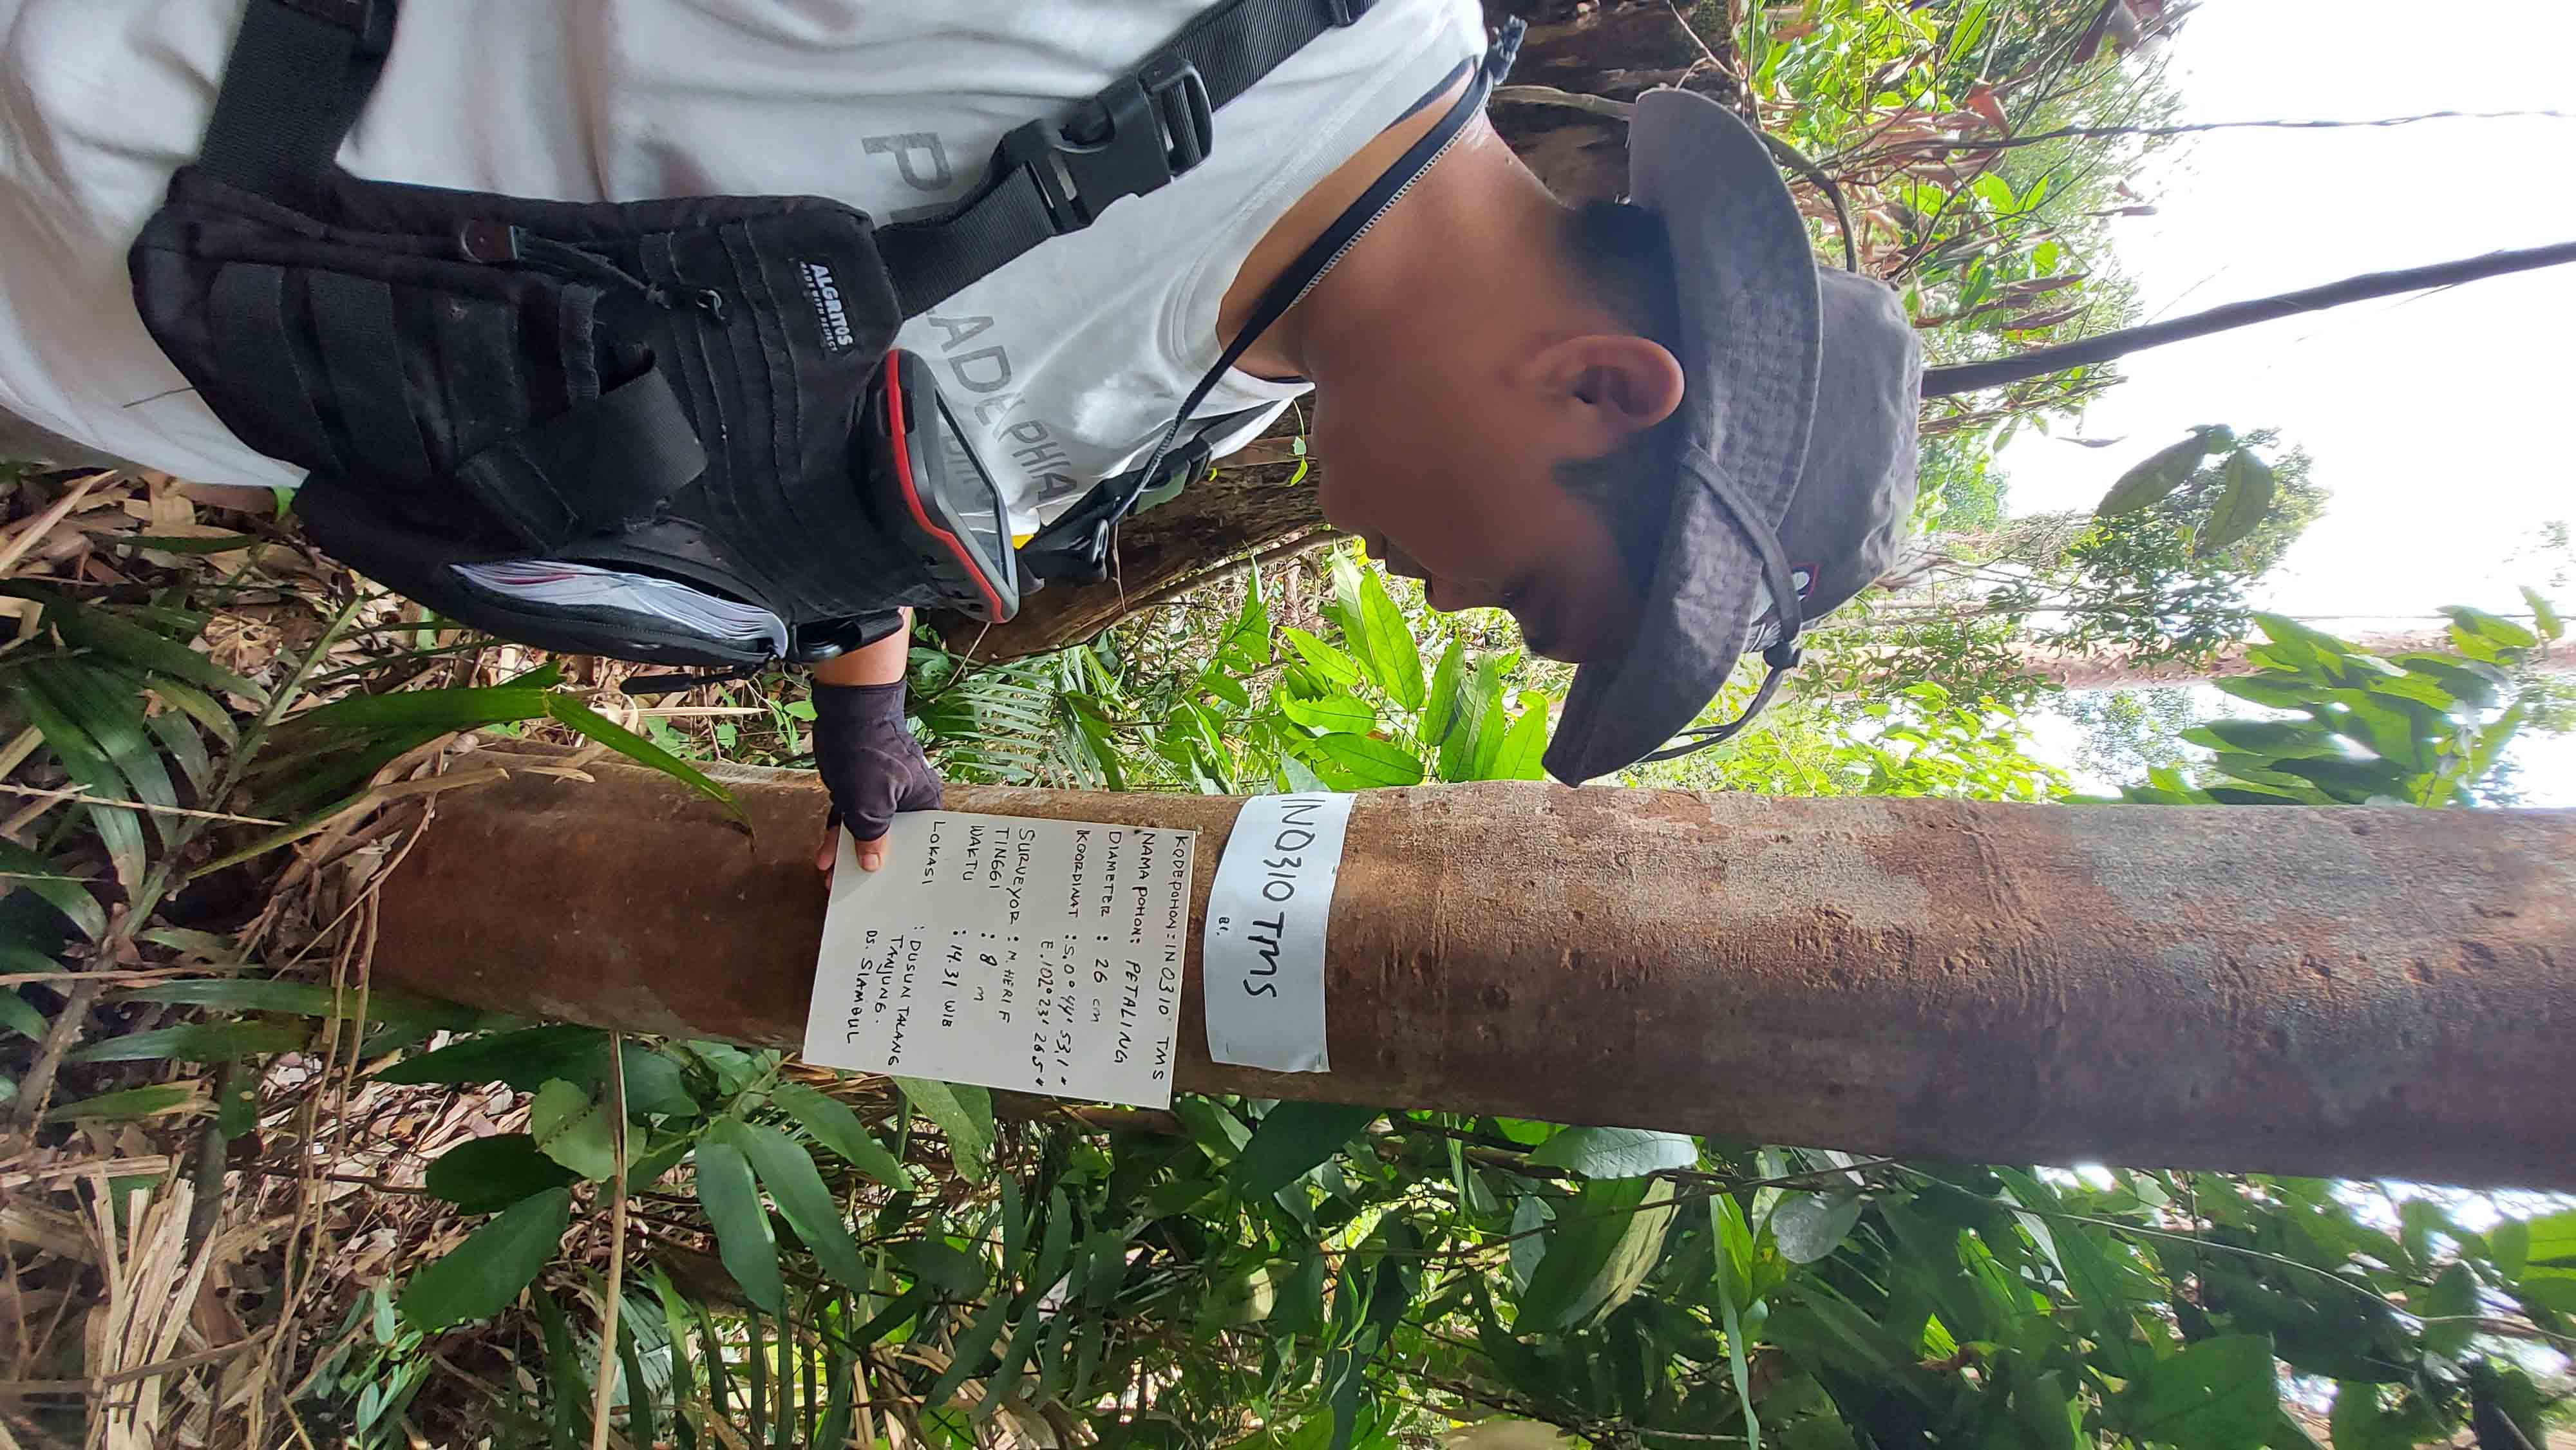 IN0310 TMS
81.
KODE POHON : IN 0310 TMS
NAMA POHON : PETALING
DIAMETER : 26 cm
KOORDINAT : S. 0° 44' 53,1"
E. 102° 23' 26 5"
SURVEYOR : M. HERI F
TINGGI : 8 m
WAKTU : 14.31 WIB
LOKASI : DUSUN TALANG
TANJUNG.
DS. SIAMBUL
ALGRITOS
MADE WITH RESPECT